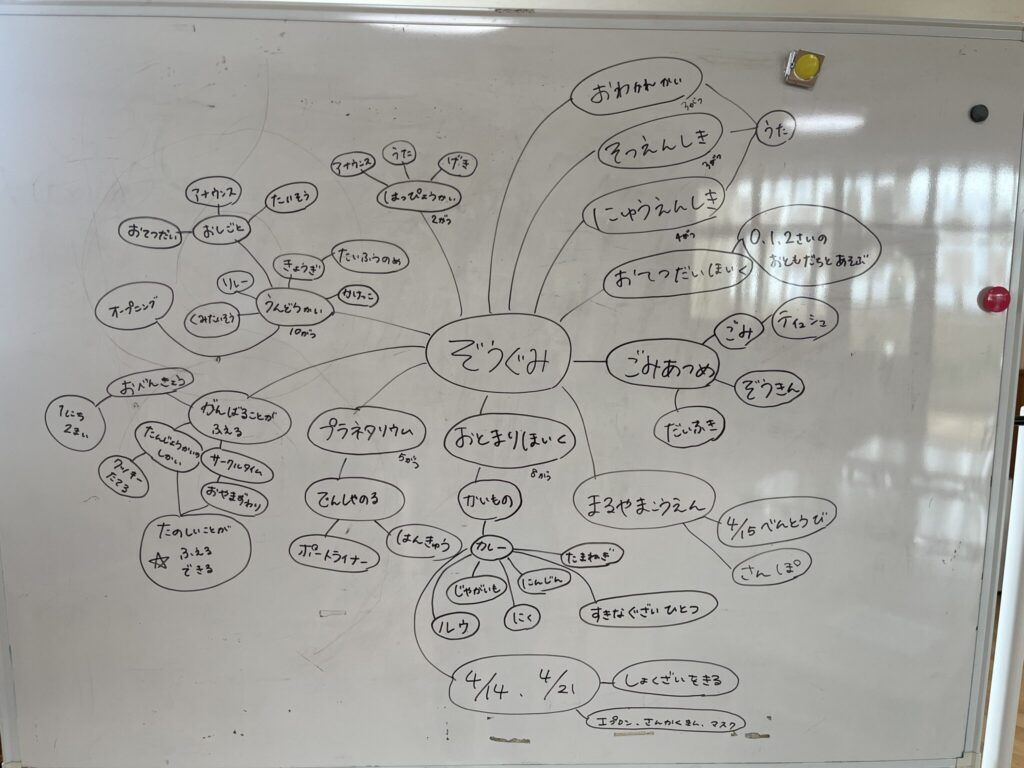 ぞうぐみ
おわかれかい
3がつ
そつえんしき
3がつ
にゅうえんしき
4がつ
うた
おてつだいほいく
0.1.2さいの
おともだちとあそぶ
ごみあつめ
ごみ
ティシュ
ぞうきん
だいふき
まるやまこうえん
4/15 べんとうび
さんぽ
おとまりほいく
8がつ
かいもの
カレー
たまねぎ
にんじん
じゃがいも
にく
ルウ
すきなぐざいひとつ
4/14、4/21
しょくざいをきる
エプロン、さんかくきん、マスク
プラネタリウム
5がつ
でんしゃのる
ポートライナー
はんきゅう
がんばることが
ふえる
おべんきょう
1にち
2まい
たんじょうかいの
しかい
サークルタイム
おやますわり
たのしいことが
☆ ふえる
できる
うんどうかい
10がつ
きょうぎ
たいふうのめ
かけっこ
リレー
くみたいそう
オープニング
おしごと
アナウンス
たいそう
おてつだい
はっぴょうかい
2がつ
アナウンス
うた
げき